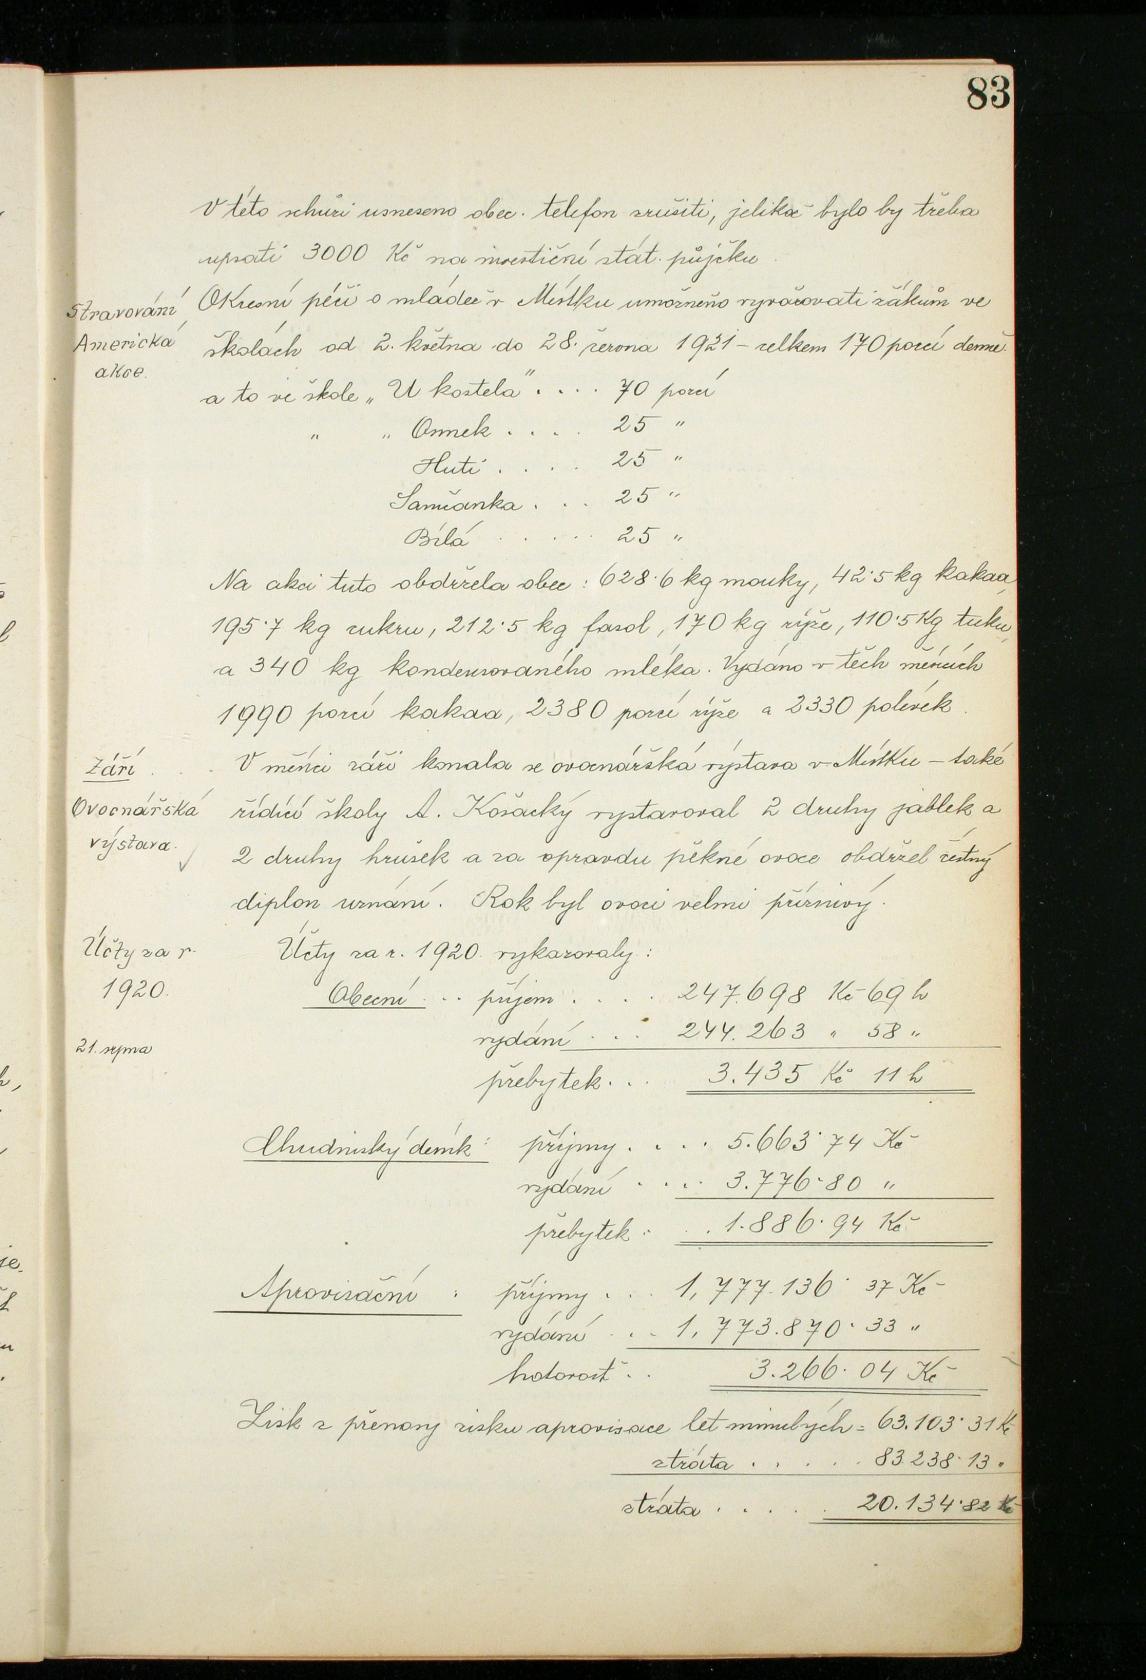 83
V této schůzi usneseno obec. telefon zrušiti, jelikož bylo by třeba
upsati 3000 Kč na investiční stát. půjčku.
Stravování
Americká
akce.
Okresní péčí o mládež v Místku umožněno vyvařovati žákům ve
školách od 2. května do 28. června 1921 – celkem 170 porcí denně
a to ve škole „U kostela" . . . . 70 porcí
„ „ Ostrek . . . . 25 "
Huti . . . . 25 "
Samčanka . . . 25 "
Bílá . . . . . 25 "
Na akci tuto obdržela obec: 628·6 kg mouky, 42·5 kg kakaa,
195·7 kg cukru, 212·5 kg fasol, 170 kg rýže, 110·5 Kg tuku,
a 340 kg kondensovaného mléka. Vydáno v těch měsících
1990 porcí kakaa, 2380 porcí rýže a 2330 polévek.
Září
Ovocnářská
výstava.
V měsíci září konala se ovocnářská výstava v Místku – také
řídící školy A. Košacký vystavoval 2 druhy jablek a
2 druhy hrušek a za opravdu pěkné ovoce obdržel čestný
diplon uznání. Rok byl ovoci velmi příznivý.
Účty za r.
1920.
21. srpna
Účty za r. 1920. vykazovaly:
Obecní . . příjem . . . . 247.698 Kč 69 h
vydání . . . 244.263 " 58 "
přebytek . . . 3.435 Kč 11 h
Chudinský deník: příjmy . . . . 5.663·74 Kč
vydání . . . . 3.776·80 "
přebytek . . 1.886·94 Kč
Aprovisační : příjmy . . . 1,777.136· 37 Kč
vydání . . . 1,773.870· 33 "
hotovost . . 3.266· 04 Kč
Zisk z přenosy zisku aprovisace let minulých = 63.103·31 Kč
ztráta . . . . . 83238·13 "
ztráta . . . . . 20.134·82 Kč